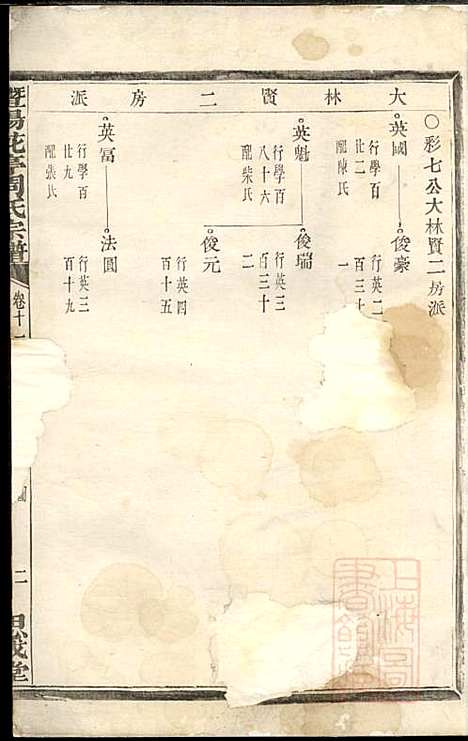 大林賢二房派
○彩七公大林賢二房派
英國
行學百
廿二
配陳氏
俊豪
行英二
百三十
一
英魁
行學百
八十六
配柴氏
俊瑞
行英三
百三十
二
俊元
行英四
百十五
英冨
行學百
廿九
配張氏
法圓
行英三
百十九
暨陽花亭周氏宗譜
卷十一
二
思成堂
上海圖書館